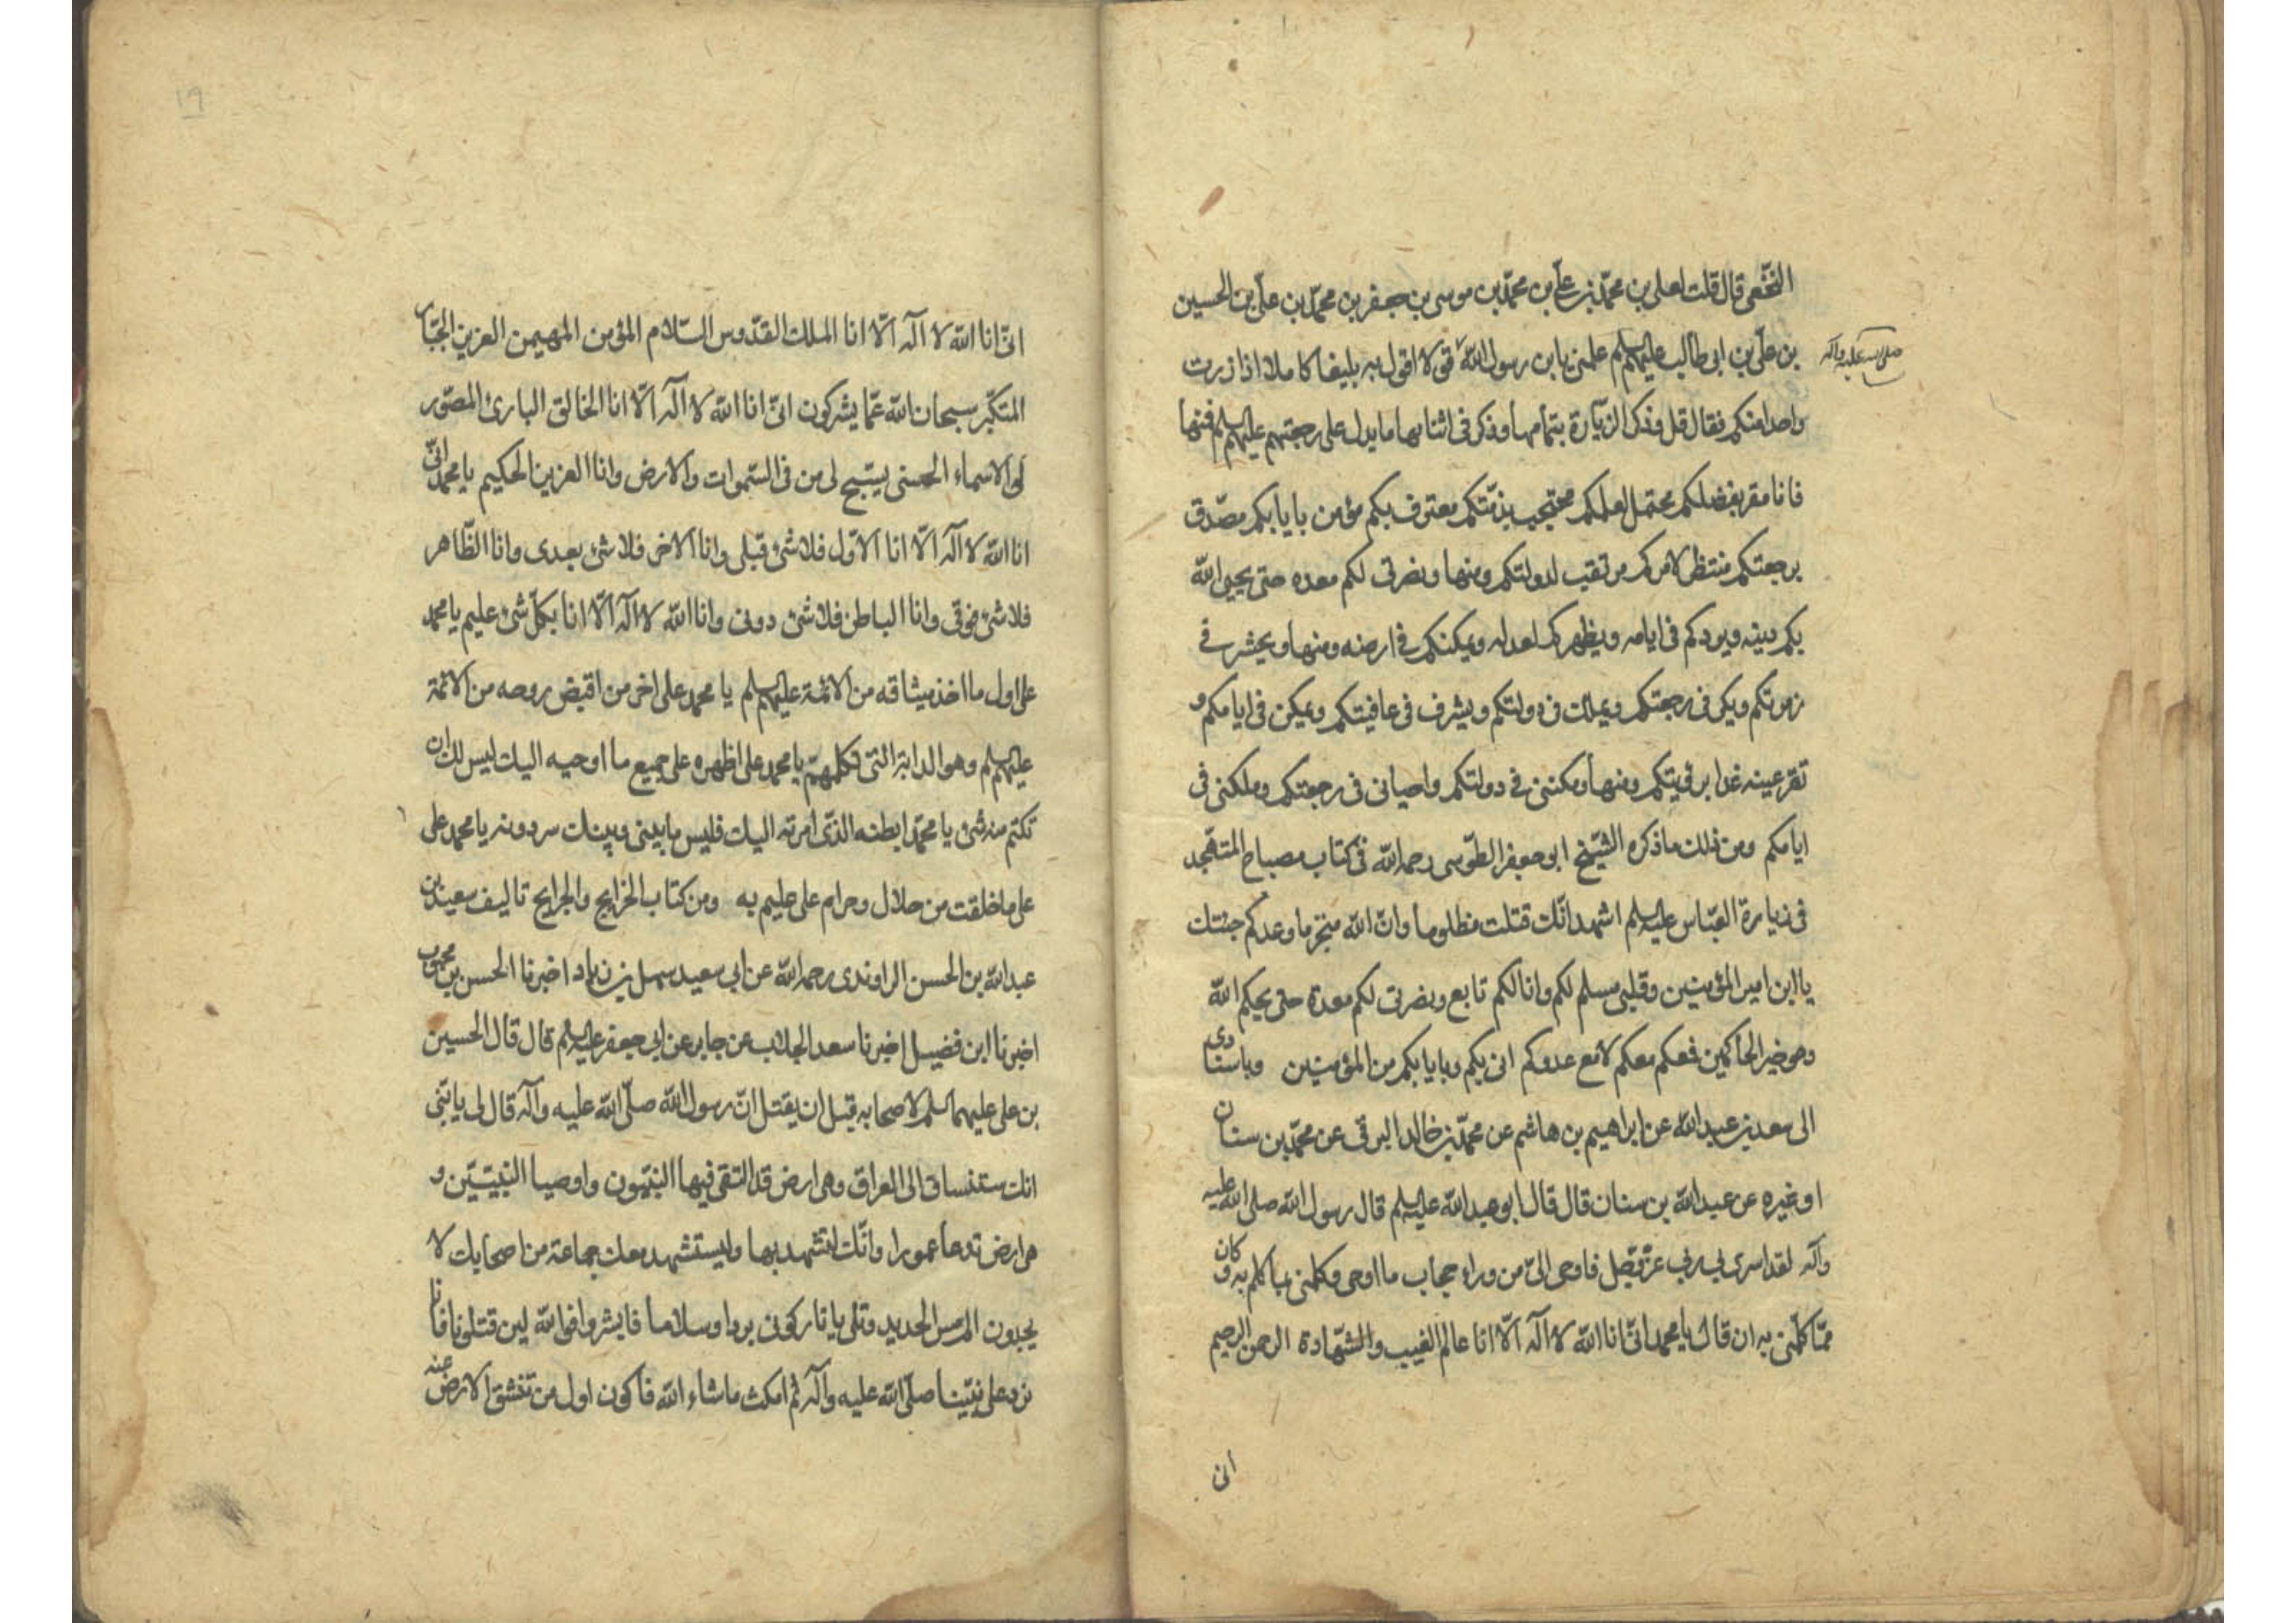 النخعى قال قلت لعلى بن محمّد بن علىّ بن محمّد بن موسى بن جعفر بن محمّد بن علىّ بن الحسين
بن علىّ بن ابى طالب عليهم السلم علمنى يا بن رسول الله قولا اقول به بليغا كاملا اذا زرت
صلى الله عليه واله
واحدا منكم فقال قل وذكر الزيارة بتمامها وذكر فى اثنائها ما يدل على رجعتهم عليهم السلم فمنها
فانا مقر بفضلكم محتمل لعلمكم محتجب بذمّتكم معترف بكم مؤمن بايابكم مصدّق
برجعتكم منتظر لامركم مرتقب لدولتكم ومنها ونصرتى لكم معده حتى يحيى الله
بكم دينه ويردكم فى ايامه ويظهركم لعدله ويمكنكم فى ارضه ومنها ويحشر فى
زمرتكم ويكر فى رجعتكم ويملك فى دولتكم ويشرف فى عافيتكم ويمكن فى ايامكم و
تقر عينه غدا برؤيتكم ومنها ومكننى فى دولتكم واحيانى فى رجعتكم وملكنى فى
ايامكم ومن ذلك ما ذكره الشيخ ابو جعفر الطّوسى رحمه الله فى كتاب مصباح المتهجد
فى زيارة العبّاس عليه السلم اشهد انّك قتلت مظلوما وانّ الله منجز ما وعدكم جئتك
يا ابن امير المؤمنين وقلبى مسلم لكم وانا لكم تابع ونصرتى لكم معدة حتى يحكم الله
وهو خير الحاكمين فمعكم معكم لا مع عدوكم انى بكم وبايابكم من المؤمنين وباسنادى
الى سعد بن عبد الله عن ابراهيم بن هاشم عن محمّد بن خالد البرقى عن محمّد بن سنان
او غيره عن عبد الله بن سنان قال قال ابو عبد الله عليه السلم قال رسول الله صلى الله عليه
وآله لقد اسرى بى ربى عزّ وجّل فاوحى الىّ من وراء حجاب ما اوحى وكلمنى بما كلم به وكان
ممّا كلّمنى به ان قال يا محمد انّى انا الله لا اله الّا انا عالم الغيب والشّهادة الرحمن الرحيم
انى
١٩
انّى انا الله لا اله الّا انا الملك القدّوس السّلام المؤمن المهيمن العزيز الجبّار
المتكبّر سبحان الله عمّا يشركون انّى انا الله لا اله الّا انا الخالق البارئ المصّور
لى الاسماء الحسنى يسّبح لى من فى السّموات والارض وانا العزيز الحكيم يا محمد انّى
انا الله لا اله الّا انا الاوّل فلا شئ قبلى وانا الاخر فلا شئ بعدى وانا الظّاهر
فلا شئ فوقى وانا الباطن فلا شئ دونى وانا الله لا اله الّا انا بكلّ شئ عليم يا محمد
على اول ما اخذ ميثاقه من الائمة عليهم السلم يا محمد على اخر من اقبض روحه من الائمة
عليهم السلم وهو الدابة التى تكلمهم يا محمد على اظهره على جميع ما اوحيه اليك ليس لك ان
تكتم منه شئ يا محمّد ابطنه الذّى اسررته اليك فليس ما بينى وبينك سر دونه يا محمد على
على ما خلقت من حلال وحرام على عليم به ومن كتاب الخرايج والجرايح تاليف سعيد بن
عبد الله بن الحسن الراوندى رحمه الله عن ابى سعيد سهل بن زياد اخبرنا الحسن بن محبوب
اخبرنا ابن فضيل اخبرنا سعد الجلاب عن جابر عن ابى جعفر عليه السلم قال قال الحسين
بن على عليهما السلم لاصحابه قبل ان يقتل انّ رسول الله صلّى الله عليه وآله قال لى يا بنّى
انك ستنساق الى العراق وهى ارض قد التقى فيها النبيّون واوصيا النبيّين و
هى ارض تدعا عمورا وانّك لتشهد بها وليستشهد معك جماعة من اصحابك لا
يجدون الم مس الحديد وتلى يا نار كونى بردا وسلاما فابشروا فوالله لين قتلونا فانا
نرد على نبيّنا صلّى الله عليه وآله ثم امكث ماشاء الله فاكون اول من تنشق الارض عنه